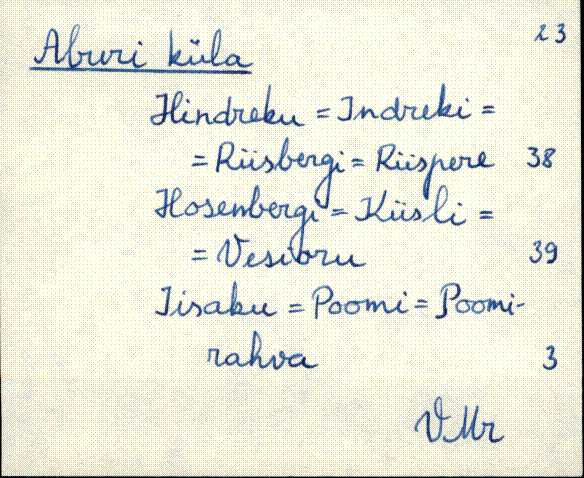 23
Aburi küla
Hindreku = Indreki =
= Riisbergi = Riispere 38
Hosenbergi = Küsli =
= Vesioru 39
Iisaku = Poomi = Poomi-
rahva 3
VMr